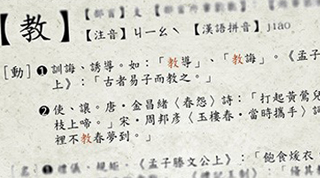 【教】
【部首】支
【注音】ㄐㄧㄠˋ 【漢語拼音】jiāo
[動] ❶訓誨、誘導。如：「教導」、「教誨」。《孟子
上》：「古者易子而教之。」
❷使、讓。唐·金昌緒〈春怨〉詩：「打起黃鶯兒
枝上啼。」宋·周邦彥〈玉樓春·當時攜手〉詞
裡不教春夢到。」
❶禮儀、規矩。《孟子滕文公上》：「飽食煖衣、